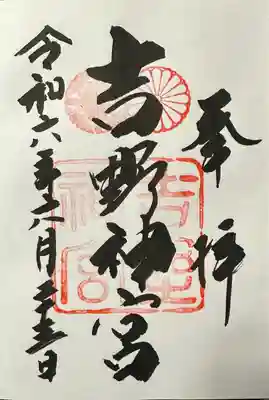 奉拝
吉野神宮
令和六年六月二十三日
吉野神宮